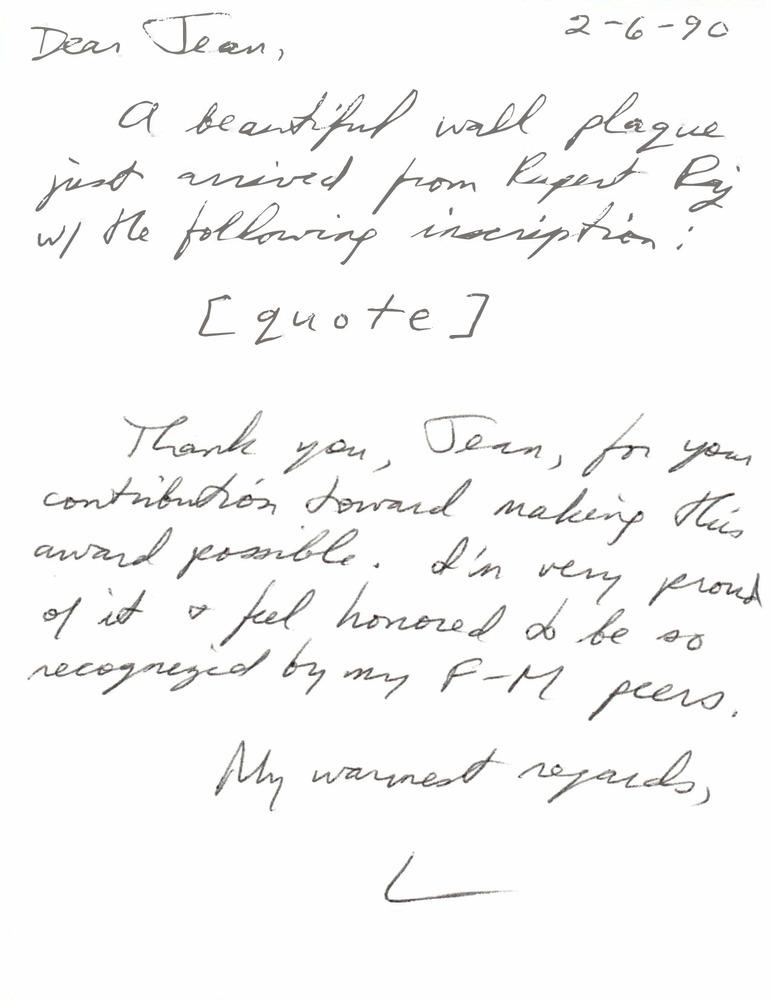 2-6-90
Dear Jean,
A beautiful wall plaque
just arrived from Rupert Raj
w/ the following inscription:
[quote]
Thank you, Jean, for your
contribution toward making this
award possible. I'm very proud
of it & feel honored to be so
recognized by my F-M peers.
My warmest regards,
L